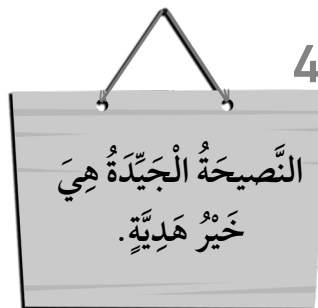 4
النَّصيحَةُ الْجَيِّدَةُ هِيَ
خَيْرُ هَدِيَّةٍ.